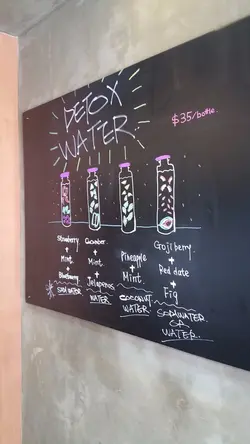 DETOX
WATER
$35/bottle.
Strawberry
+
Mint
+
Blueberry
SODA WATER
Cucumber
+
Mint
+
Jalapenos
WATER
Pineapple
+
Mint
COCONUT
WATER
Gojiberry
+
Red date
+
Fig
SODAWATER
OR
WATER